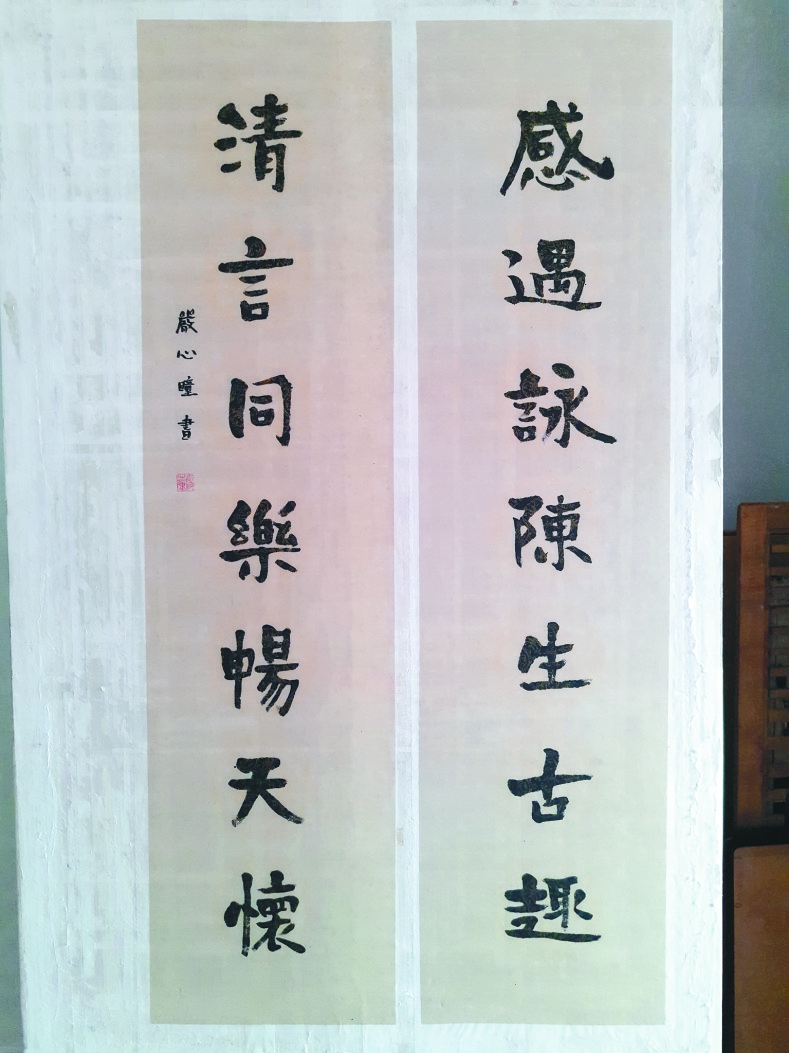 感遇詠陳生古趣
清言同樂暢天懷
嚴心曈書